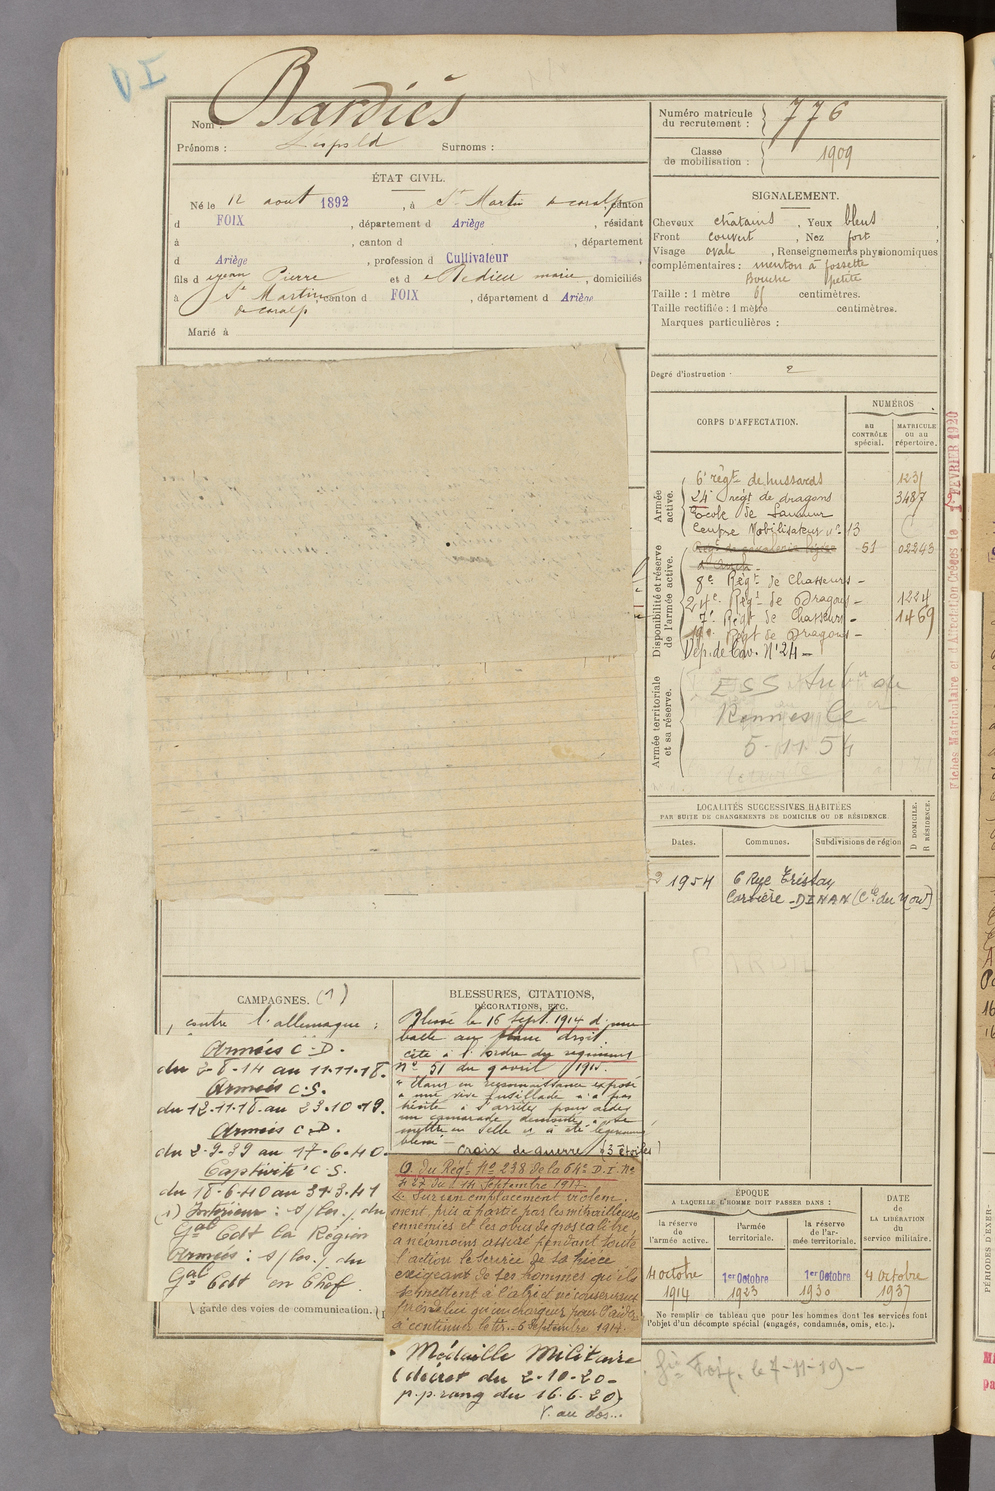 VI
Nom : Bardiés
Prénoms : Léopold Surnoms :
ÉTAT CIVIL.
Né le 12 aout 1892, à St Martin de caralp, canton
d FOIX, département d Ariège, résidant
à , canton d , département
d Ariège, profession d Cultivateur
fils d e Jean Pierre et d e Dedieu marie, domiciliés
à St Martin de caralp, canton d FOIX, département d Ariège
Marié à
Numéro matricule du recrutement : 776
Classe de mobilisation : 1909
SIGNALEMENT.
Cheveux châtains, Yeux bleus
Front couvert, Nez fort
Visage ovale, Renseignements physionomiques
complémentaires : menton à fossette
Bouche petite
Taille : 1 mètre 61 centimètres.
Taille rectifiée : 1 mètre centimètres.
Marques particulières :
Degré d'instruction : 2
CORPS D'AFFECTATION.
NUMÉROS
au CONTRÔLE spécial.
MATRICULE ou au répertoire.
Armée active.
6e régt de hussards 1231
24e régt de dragons 3487
Ecole de Saumur
Centre Mobilisateur no 13
Disponibilité et réserve de l'armée active.
51 02243
8e Régt de Chasseurs -
24e Régt de Dragons - 1224
7e Régt de Chasseurs - 1469
19e Régt de Dragons -
Dép. de Cav. N° 24 -
Armée territoriale et sa réserve.
ESS Subon de
Rennes le
5-11-54
Fiches Matriculaire et d'Affectation Créées le 1er FEVRIER 1920
LOCALITÉS SUCCESSIVES HABITÉES
PAR SUITE DE CHANGEMENTS DE DOMICILE OU DE RÉSIDENCE
Dates. Communes. Subdivisions de région
D DOMICILE. R RÉSIDENCE.
1954 6 Rue Tristan
Corbière - DINAN (Cte du Nord)
CAMPAGNES. (1)
contre l'allemagne :
Armées C-D.
du 2-8-14 au 11-11-18.
Armées C.S.
du 12.11.18. au 23.10.19.
Armées C-D.
du 2-9-39 au 17-6-40-
Captivité C.S.
du 18-6-40 au 31-3-41
(1) Intérieur : s/los./ du
Gal Cdt la Région
Armées : s/los./ du
Gal Cdt en Chef
garde des voies de communication.
BLESSURES, CITATIONS,
DÉCORATIONS, ETC.
Blessé le 16 Sept. 1914 d'une
balle au droit.
cité à l'ordre du régiment
n° 51 du 9 avril 1915.
" Etant en reconnaissance exposé
à une vive fusillade n'a pas
hésité à s'arrêter pour aider
un camarade démonté à se
mettre en selle et a été légèrement
blessé -
croix de guerre (3 étoiles)
O. du Régt No 238 de la 64e D.I. No
427 du 14 Septembre 1917.
Le Sur un emplacement violem-
ment pris à partie par les mitrailleuses
ennemies et les obus de gros calibre,
a néanmoins assuré pendant toute
l'action le service de sa pièce
exigeant de ses hommes qu'ils
se mettent à l'abri et ne conservant
avec lui qu'un chargeur pour l'aider
à continuer le tir. 6 Septembre 1917.
Médaille Militaire
(décret du 2-10-20-
p.p. rang du 16.6.20)
V. au dos...
ÉPOQUE
A LAQUELLE L'HOMME DOIT PASSER DANS :
la réserve de l'armée active.
l'armée territoriale.
la réserve de l'armée territoriale.
DATE de LA LIBÉRATION du service militaire.
4 octobre 1914
1er Octobre 1923
1er Octobre 1930
4 octobre 1937
Ne remplir ce tableau que pour les hommes dont les services font
l'objet d'un décompte spécial (engagés, condamnés, omis, etc.).
Foix, le 7-11-19-